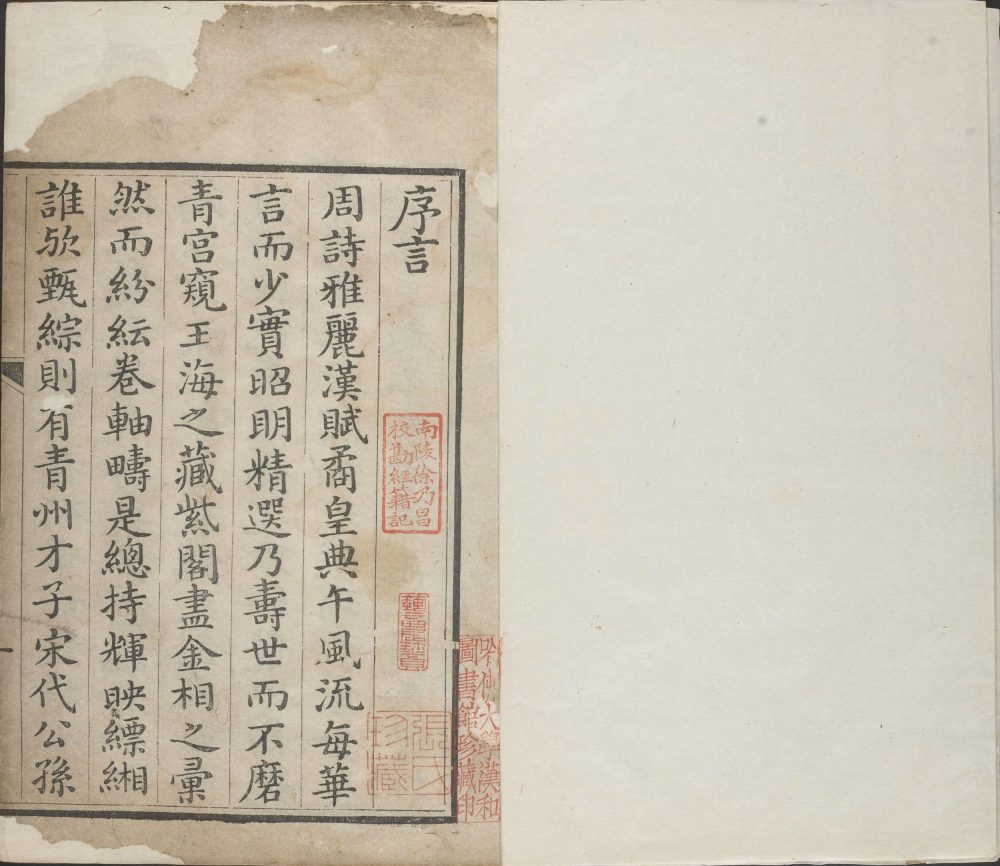 序言
周詩雅麗漢賦矞皇典午風流每華
言而少實昭明精選乃壽世而不磨
青宫窺玉海之藏紫閣盡金相之彚
然而紛紜卷軸疇是總持輝映縹緗
誰欤甄綜則有青州才子宋代公孫
南陵徐乃昌
校勘經籍記
張氏
珍藏
哈佛大學漢和
圖書館珍藏印